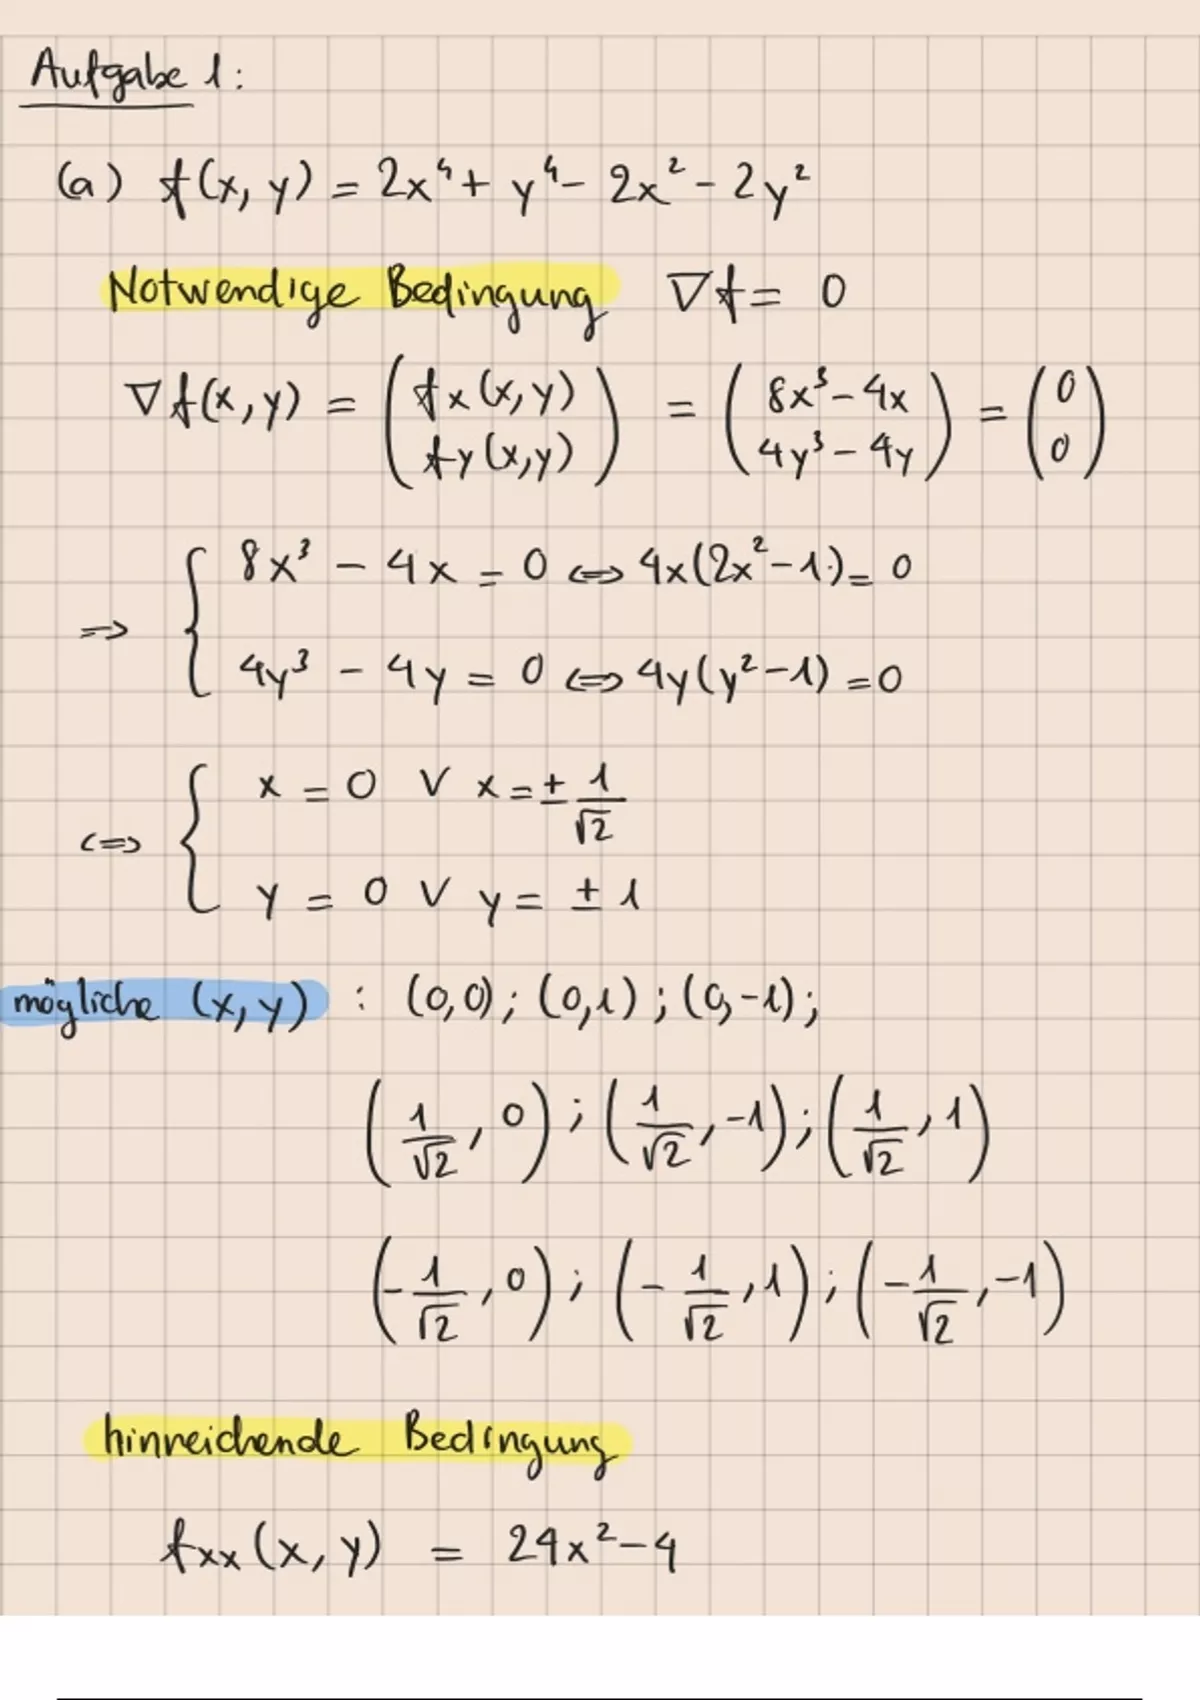 Aufgabe 1:
(a) f(x, y) = 2x⁴ + y⁴ - 2x² - 2y²
Notwendige Bedingung ∇f = 0
∇f(x, y) = ( fx (x, y) fy (x, y) ) = ( 8x³ - 4x 4y³ - 4y ) = ( 0 0 )
=> { 8x³ - 4x = 0 <=> 4x(2x² - 1) = 0
4y³ - 4y = 0 <=> 4y(y² - 1) = 0
<=> { x = 0 ∨ x = ± 1/√2
y = 0 ∨ y = ± 1
mögliche (x, y) : (0,0); (0,1); (0,-1);
(1/√2, 0); (1/√2, -1); (1/√2, 1)
(-1/√2, 0); (-1/√2, 1); (-1/√2, -1)
hinreichende Bedingung
fxx (x, y) = 24x² - 4